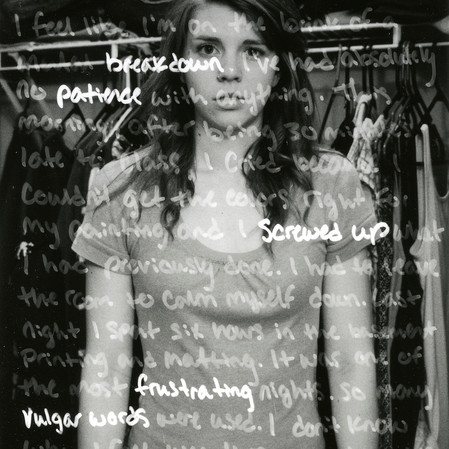 I feel like I'm on the brink of a
breakdown. I've had absolutely
no patience with anything. This
morning, after being 30 minutes
late to class, I cried because I
couldn't get the colors right for
my painting and I screwed up what
I had previously done. I had to leave
the room to calm myself down. Last
night I spent six hours in the basement
printing and matting. It was one of
the most frustrating nights. so many
vulgar words were used. I don't know